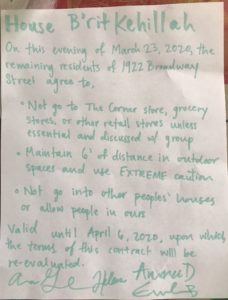 House B'rit Kehillah
On this evening of March 23, 2020, the
remaining residents of 1922 Broadway
Street agree to,
• Not go to The Corner store, grocery
stores, or other retail stores unless
essential and discussed w/ group
• Maintain 6' of distance in outdoor
spaces and use EXTREME caution
• Not go into other peoples' houses
or allow people in ours
Valid until April 6, 2020, upon which
the terms of this contract will be
re-evaluated.